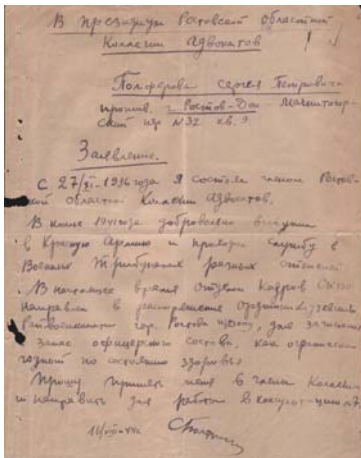 В президиум Ростовской областной
Коллегии Адвокатов
Полферова Сергея Петровича
прожив. г. Ростов-Дон - Магнитогор-
ский пер N32 кв. 9
Заявление.
С 27/XI-1936 года я состоял членом Ростов-
ской областной Коллегии Адвокатов.
В июле 1941 года добровольно вступил
в Красную Армию и проходил службу в
Военных Трибуналах разных
В настоящее время отделом Кадров
направлен в распоряжение
Райвоенкомата гор. Ростова н/Дону, для зачисления
в запас офицерского состава, как ограниченно
годный по состоянию здоровья
Прошу принять меня в члены Коллегии
и направить для работы в